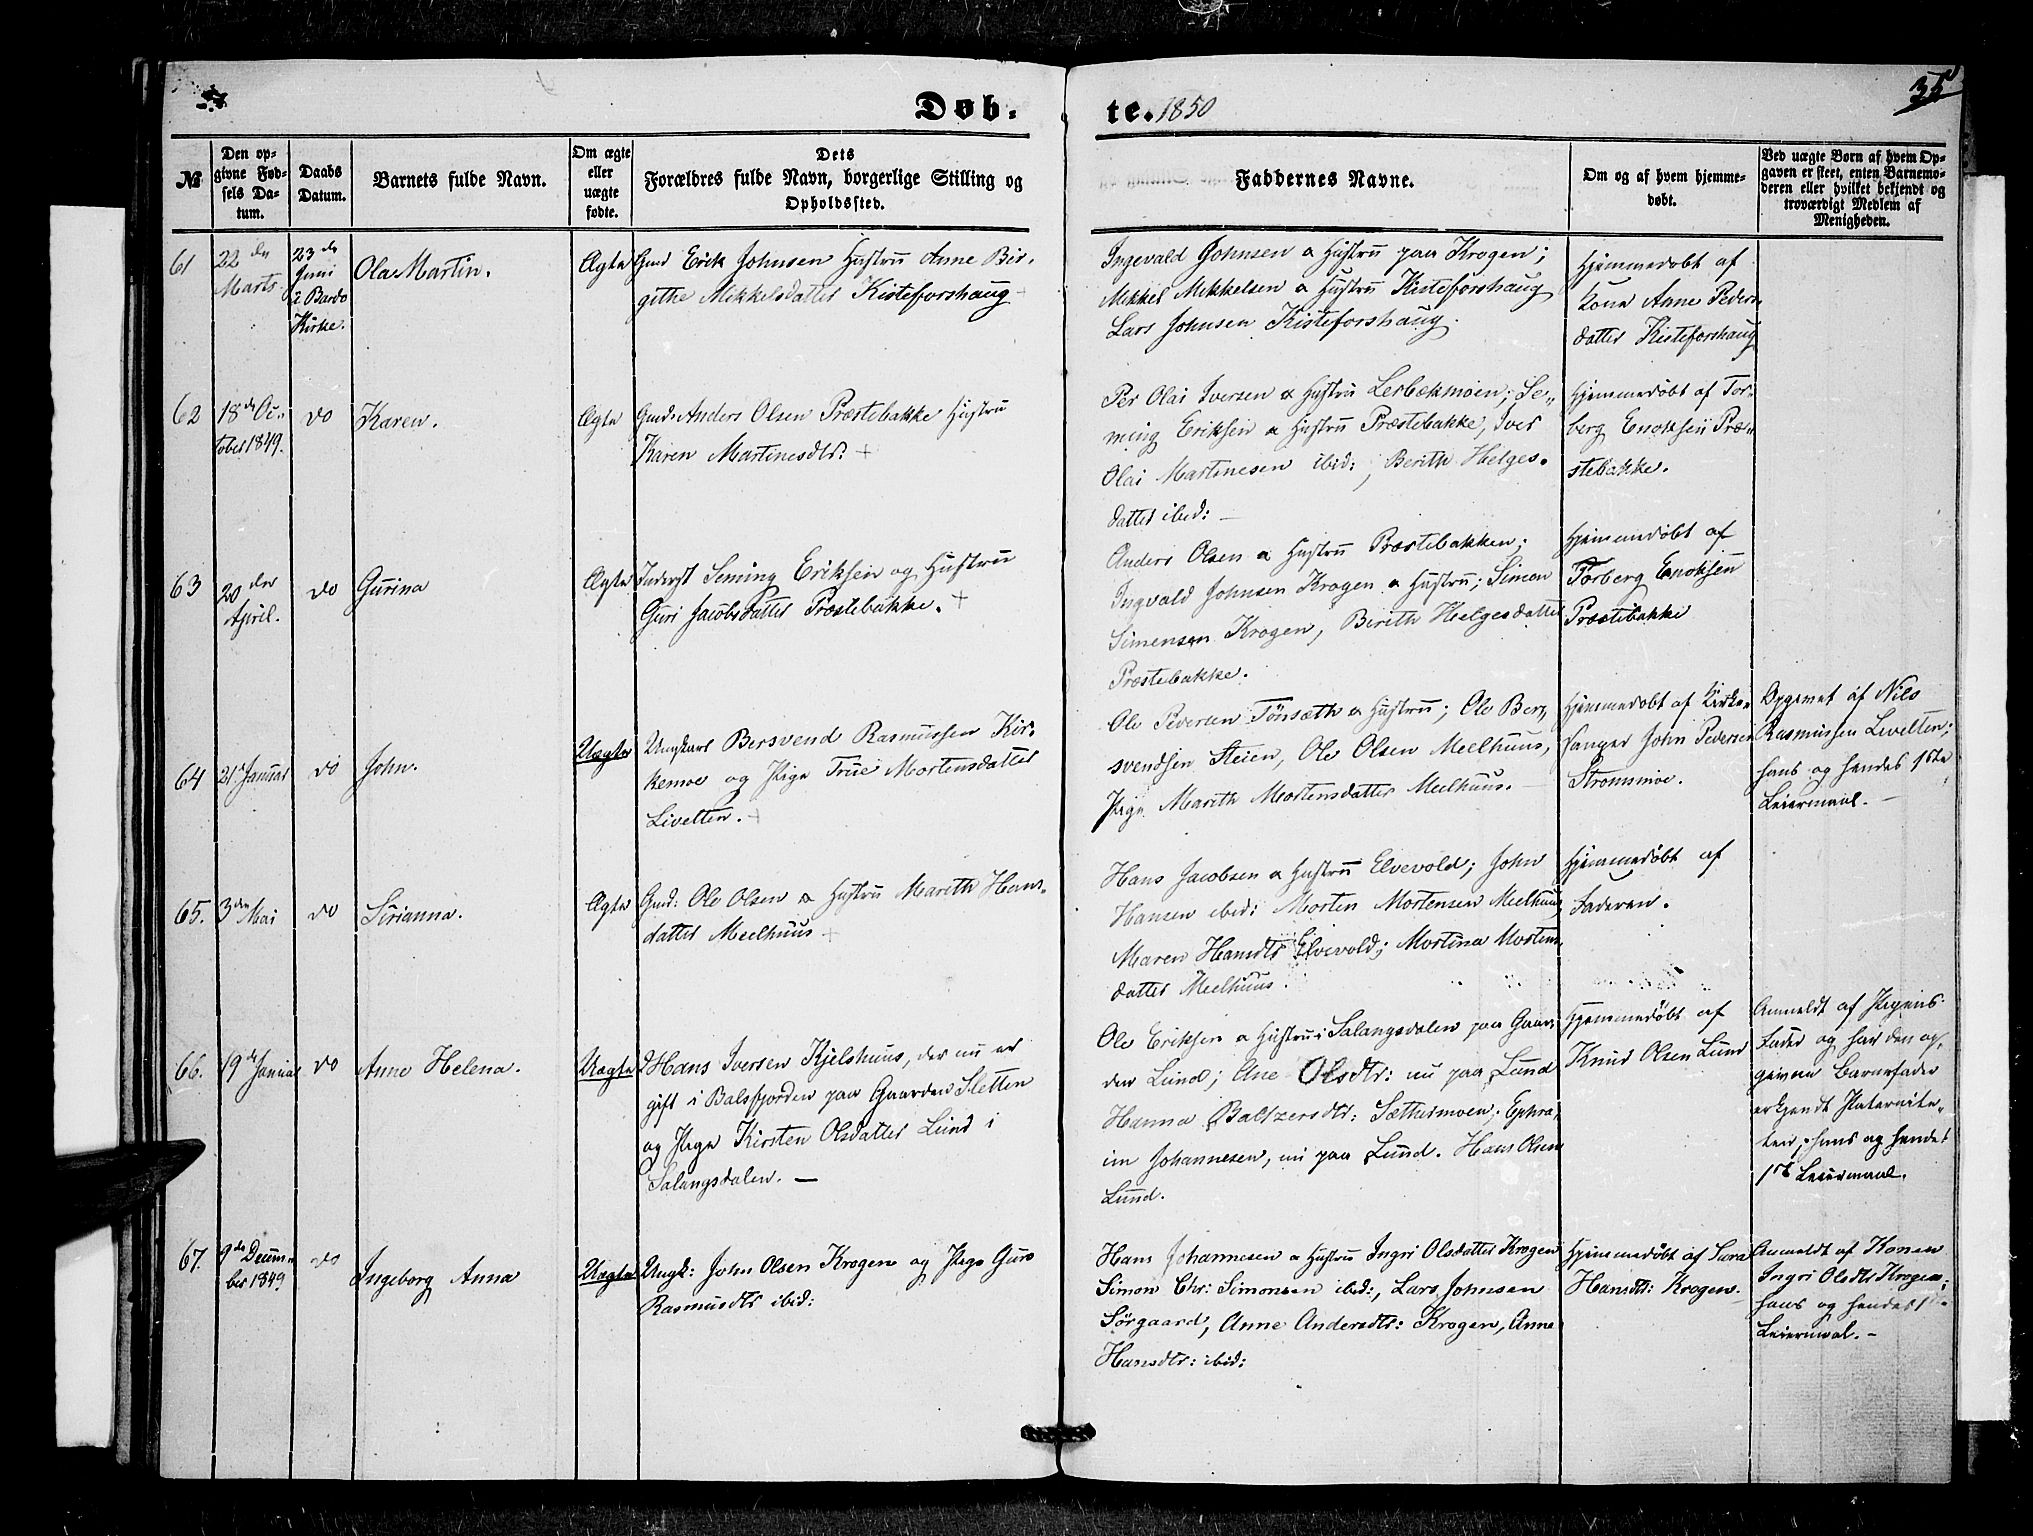 Døb-
te. 1850
35
№
Den op-
givne Fød-
sels Da-
tum.
Daabs
Datum.
Barnets fulde Navn.
Om ægte
eller
uægte
fødte.
Dets
Forældres fulde Navn, borgerlige Stilling og
Opholdssted.
Faddernes Navne.
Om og af hvem hjemme-
døbt.
Ved uægte Børn af hvem Op-
gaven er skeet, enten Barnemo-
deren eller hvilket bekjendt og
troværdigt Medlem af
Menigheden.
61
22de
Marts.
23de
Juni
i Bardo
Kirke.
Ola Martin.
Ægte
Gmd Erik Johnsen Hustru Anne Bir-
githe Mikkelsdatter Kisteforshaug
Ingevald Johnsen & Hustru paa Krogen;
Mikkel Mikkelsen & Hustru Kisteforshaug
Lars Johnsen Kisteforshaug.
Hjemmedøbt af
Kone Anne Peders-
datter Kisteforshaug
62
18de Oc-
tober 1849.
do
Karen.
Ægte
Gmd: Anders Olsen Præstebakke Hustru
Karen Martinesdtr: +
Per Olai Iversen & Hustru Lerbækmoen; Se-
ming Eriksen & Hustru Præstebakke, Iver
Olai Martinesen ibid:, Berith Helges-
datter ibid: —
Hjemmedøbt af Tor-
berg Enoksen Præ-
stebakke.
63
20der
April.
do
Gurina
Ægte
Inderst Seming Eriksen og Hustru
Guri Jacobsdatter Præstebakke. +
Anders Olsen & Hustru Præstebakken;
Ingvald Johnsen Krogen & Hustru; Simon
Simensen Krogen, Berith Helgesdatter
Præstebakke.
Hjemmedøbt af
Torberg Enoksen
Præstebakke
64
21de Januar
do
John.
Uægte
Ungkarl Bersvend Rasmussen Kir-
kemoe og Pige True Mortensdatter
Livelten. +
Ole Pedersen Tønsæth & Hustru; Ole Ber-
svendsen Steien, Ole Olsen Meelhuus,
Pige Marith Mortensdatter Meelhuus. —
Hjemmedøbt af Kirke-
sanger John Pedersen
Strømsmoe.
Opgivet af Nils
Rasmussen Levelten;
hans og hendes 1ste
Leiermaal. —
65.
3die Mai
do
Sirianna.
Ægte
Gmd: Ole Olsen & Hustru Marith Hans-
datter Meelhuus +
Hans Jacobsen & Hustru Elvevold; John
Hansen ibid: Morten Mortensen Meelhuus,
Maren Hansdtr Elvevold; Mortina Mortens-
datter Meelhuus.
Hjemmedøbt af
Faderen.
66.
19de Januar
do
Anne Helena.
Uægte
Hans Iversen Kjelshuus, der nu er
gift i Balsfjorden paa Gaarden Sletten
og Pige Kirsten Olsdatter Lund i
Salangsdalen. —
Ole Eriksen & Hustru i Salangsdalen paa Gaar-
den Lund; Ane Olsdtr: nu paa Lund
Hanna Baltzersdtr: Sættermoen; Ephra-
im Johannesen, nu paa Lund. Hans Olsen
Lund.
Hjemmedøbt af
Knud Olsen Lund
Anmeldt af Pigens
Fader og har den op-
givne Barnefader
erkjendt Paternite-
ten; hans og hendes
1ste Leiermaal.
67.
9de Decem-
ber 1849
do
Ingeborg Anna
Uægte
Ungk: John Olsen Krogen og Pige Guro
Rasmusdtr ibid:
Hans Johannesen & Hustru Ingri Olsdatter Krogen
Simon Chr: Simonsen ibid:, Lars Johnsen
Sørgaard, Anne Andersdtr: Krogen, Anne
Hansdtr: ibid:
Hjemmedøbt af Sara
Hansdtr: Krogen.
Anmeldt af Konen
Ingri Olsdtr Krogen;
hans og hendes 1ste
Leiermaal. —